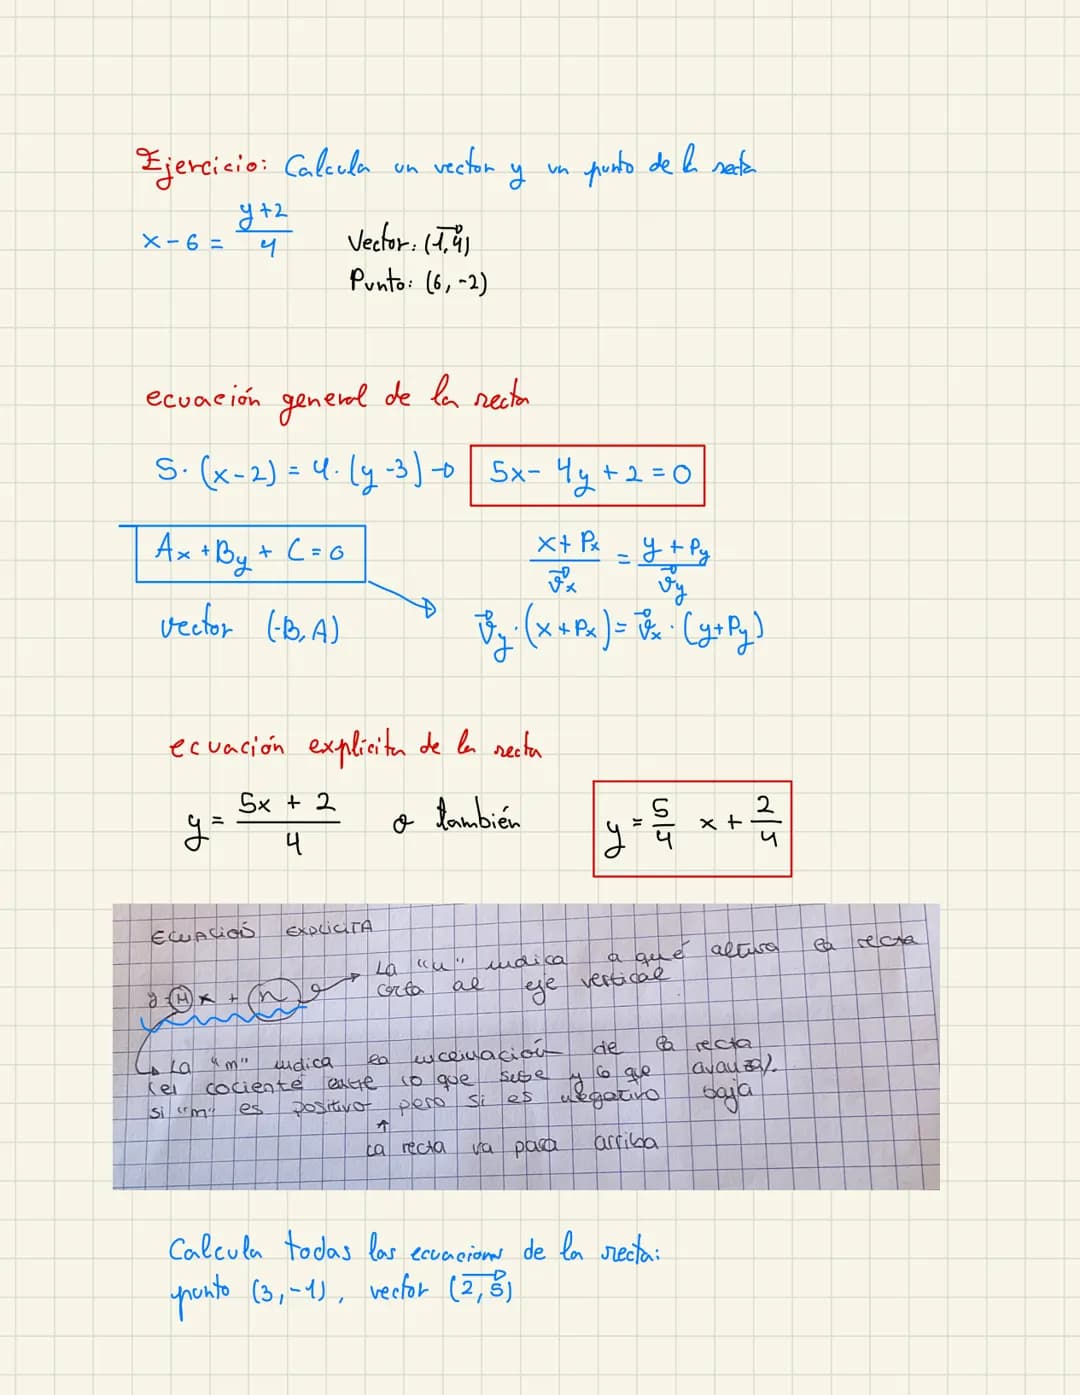 Ejercicio: Calcula un vector y un punto de la recta
x - 6 = (y+2)/4
Vector: (1,4)
Punto: (6, -2)
ecuación general de la recta
5·(x-2) = 4·(y-3) → 5x - 4y + 2 = 0
Ax + By + C = 0
(x + Px)/vx = (y + Py)/vy
vector (-B, A)
vy·(x + Px) = vx·(y + Py)
ecuación explicita de la recta
y = (5x + 2)/4 o también y = 5/4 x + 2/4
ECUACIÓN EXPLICITA
La "n" indica a qué altura la recta
corta al eje vertical
y = Mx + n
La "m" indica la inclinación de la recta
(el cociente entre lo que sube y lo que avanza).
si "m" es positivo pero si es negativo baja
↑
La recta va para arriba
Calcula todas las ecuaciones de la recta:
punto (3,-1), vector (2,5)